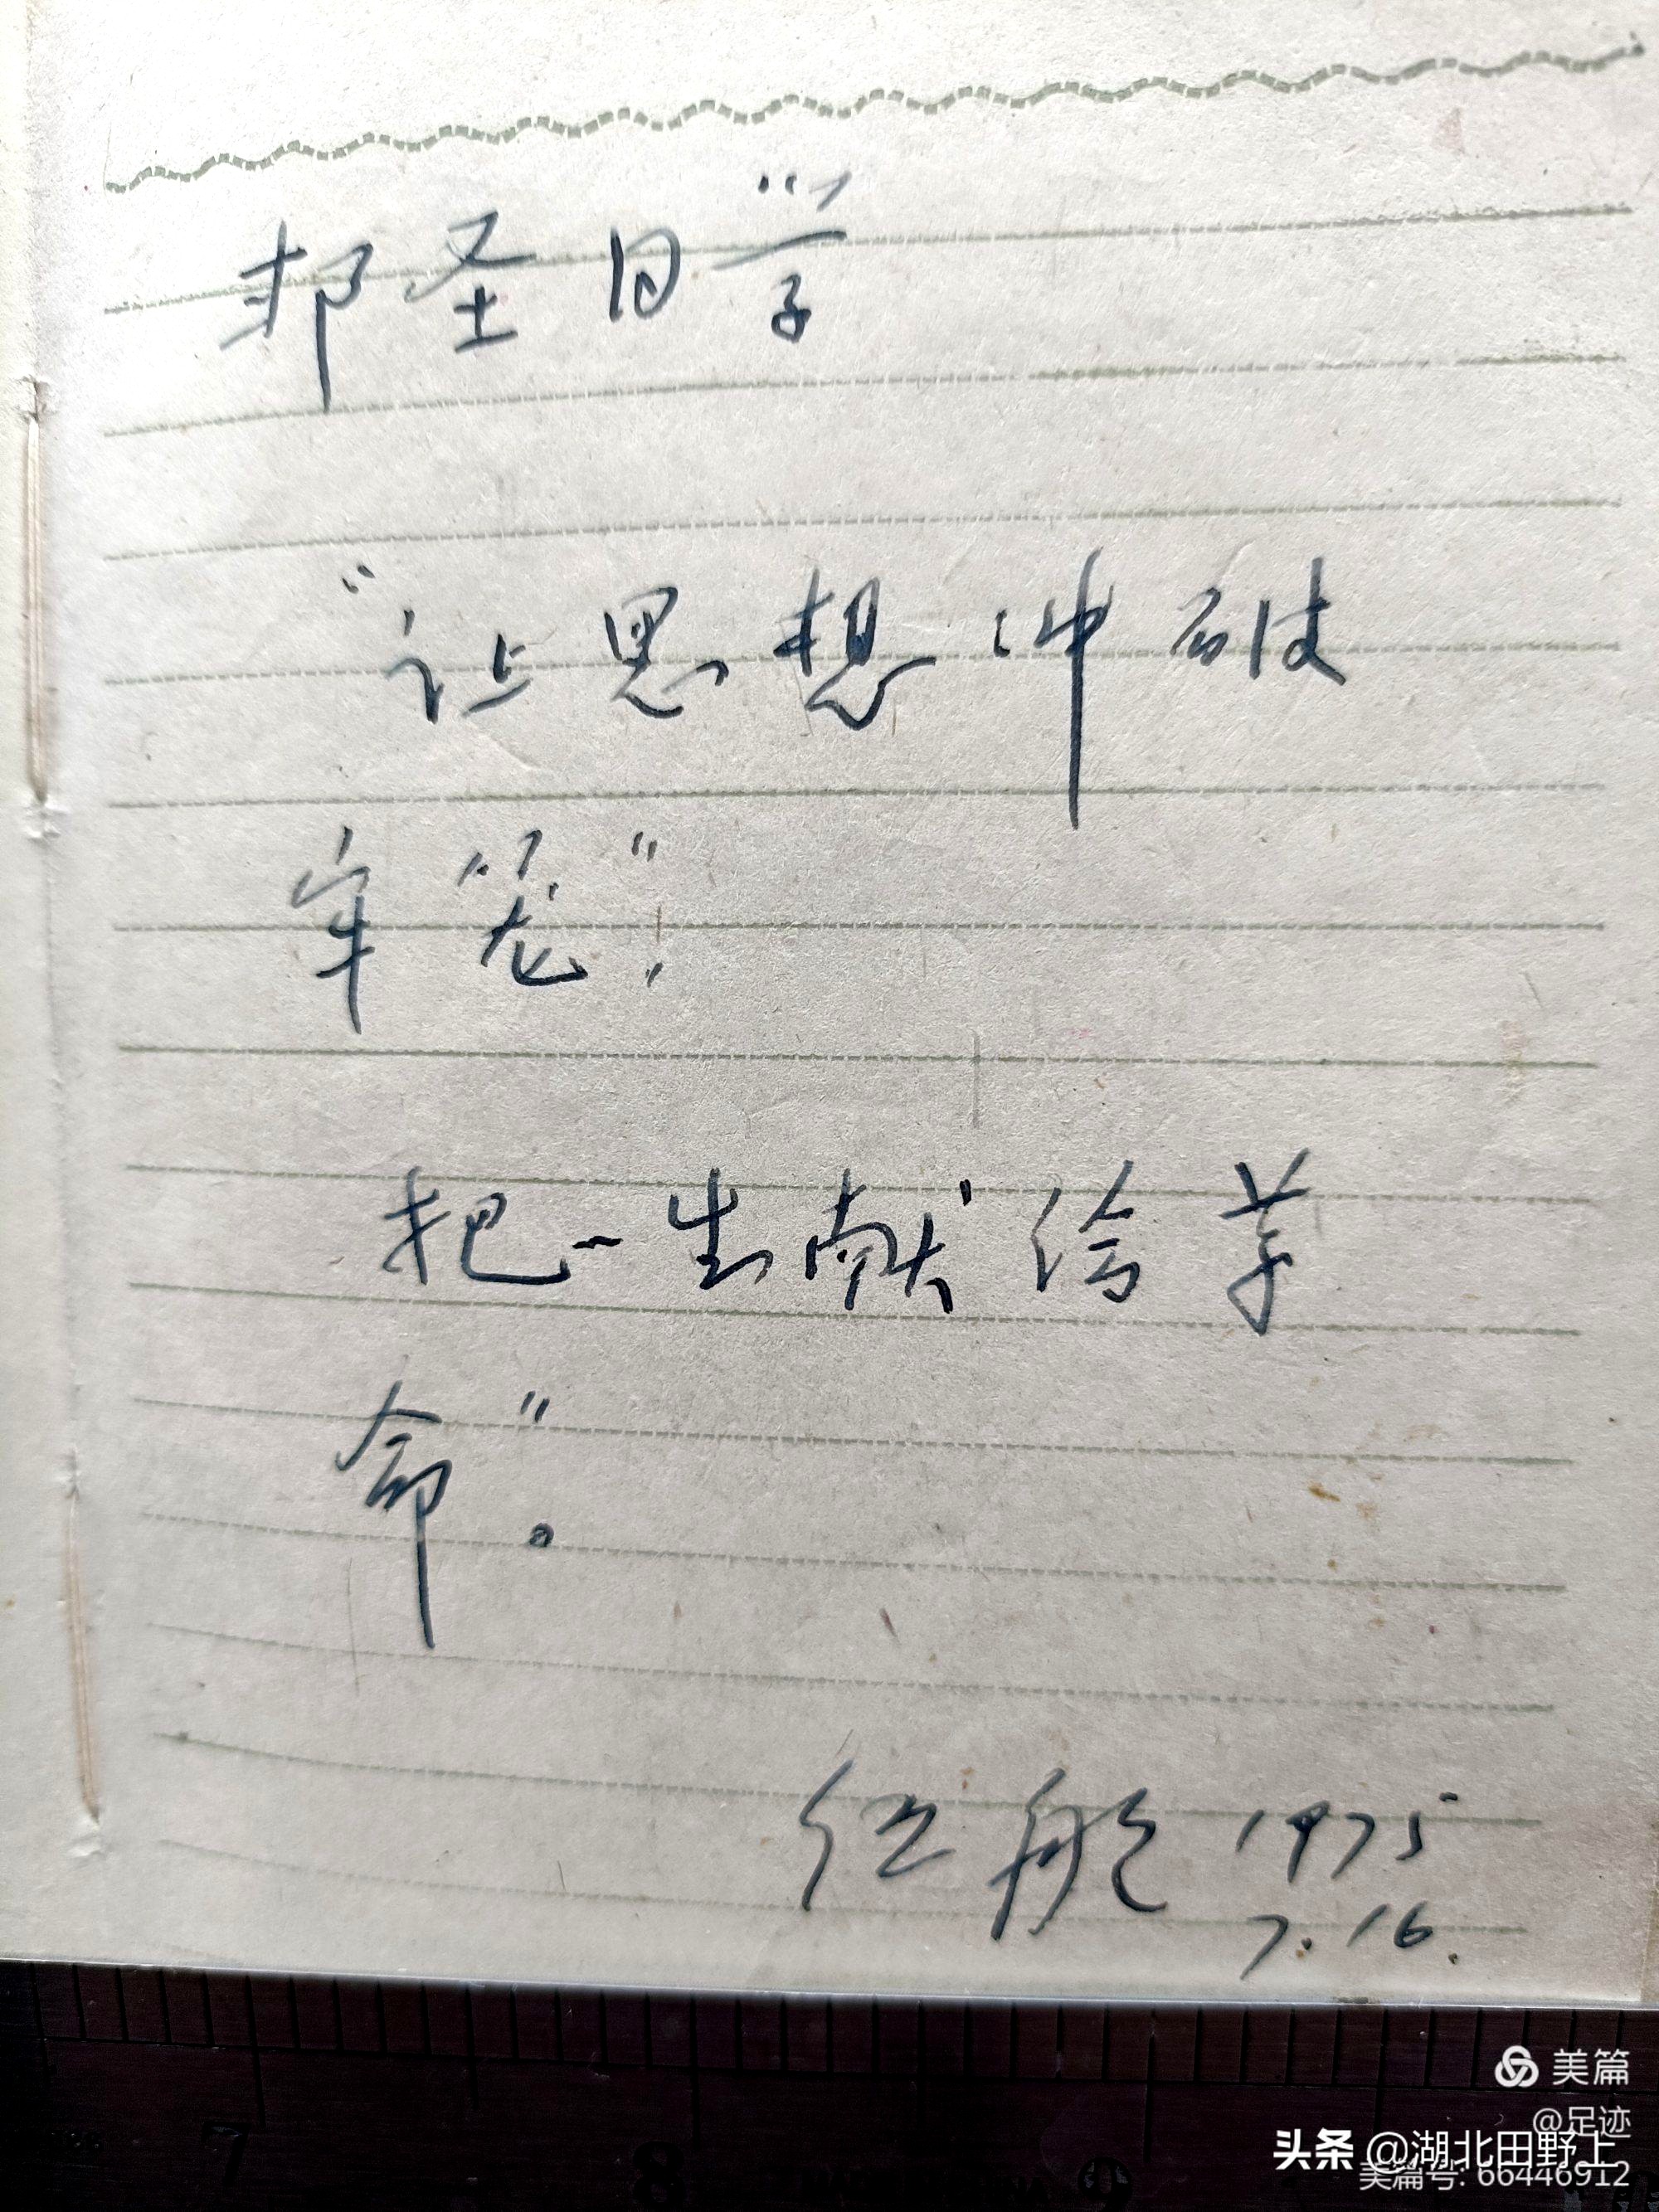 邦圣同学
“让思想冲破
牢笼”！
把一生献给革
命”。
红航 1975
7.16.
美篇
@足迹
头条 @湖北田野上
美篇号: 66446912
7 8 9